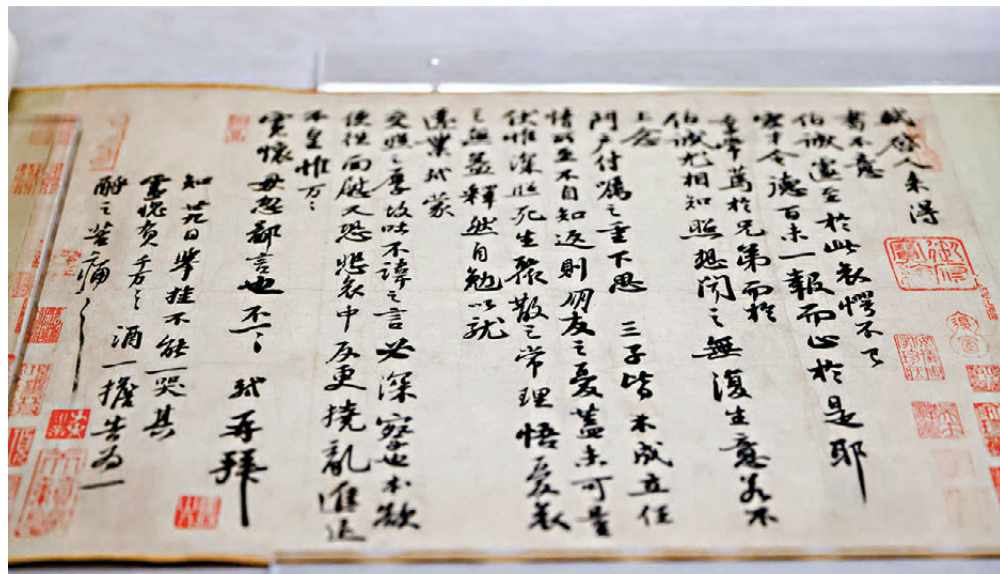 軾啓人来得
書不意
伯誠遽至於此哀愕不已
宏才令德百未一報而止於是耶
季常篤於兄弟而於
伯誠尤相知照想聞之無復生意若不
上念
門戶付囑之重下思三子皆未成立任
情所至不自知返則朋友之憂蓋未可量
伏惟深照死生聚散之常理悟憂哀
之無益釋然自勉以就
遠業軾蒙
交照之厚故吐不諱之言必深察也本欲
便往面慰又恐悲哀中反更撓亂進退
不皇惟万々
寬懷毋忽鄙言也不一々軾再拜
知廿九日舉掛不能一哭其
靈愧負千万々酒一擔告為一
酹之苦痛々々